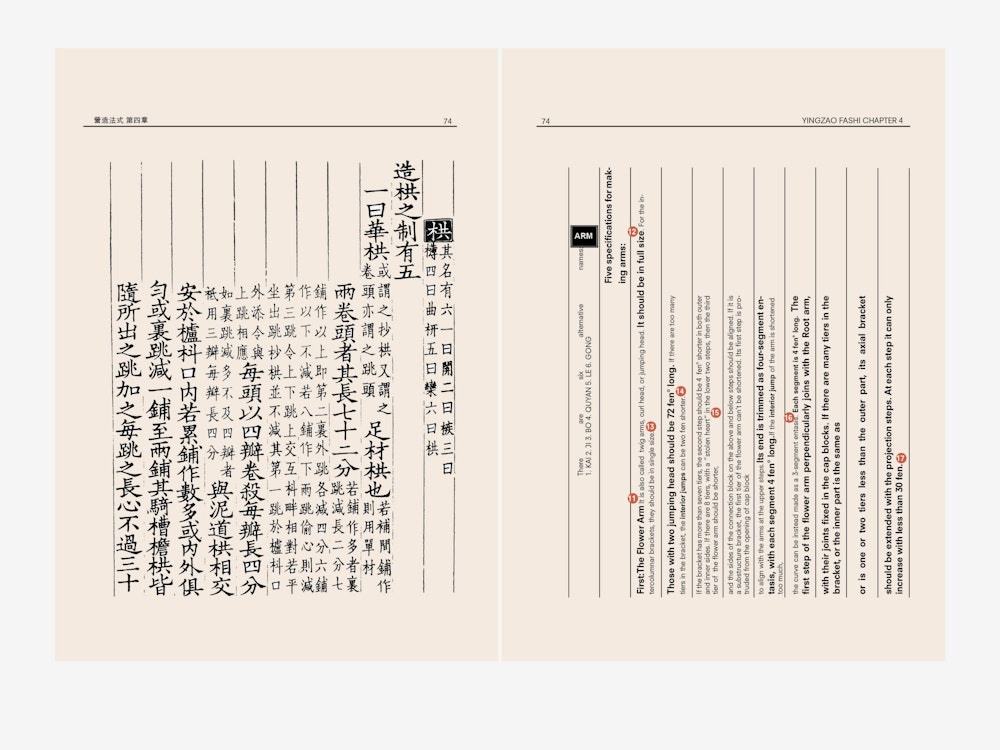 營造法式 第四章
74
栱
其名有六一曰閞二曰槉三曰
欂四曰曲枅五曰欒六曰栱
造栱之制有五
一曰華栱
或謂之抄栱又謂之
卷頭亦謂之跳頭
足材栱也
若補間鋪作
則用單材
兩卷頭者其長七十二分
若鋪作多者裏
跳減長二分七
鋪作以上即第二裏外跳各減四分六鋪
作以下不減若八鋪作下兩跳偷心則減
第三跳令上下跳上交互枓畔相對若平
坐出跳抄栱並不減其第一跳於櫨枓口
外添令與
上跳相應
每頭以四瓣卷殺每瓣長四分
如裏跳減多不及四瓣者
祗用三瓣每瓣長四分
與泥道栱相交
安於櫨枓口內若累鋪作數多或內外俱
勻或裏跳減一鋪至兩鋪其騎槽檐栱皆
隨所出之跳加之每跳之長心不過三十
74
YINGZAO FASHI CHAPTER 4
ARM
There are six alternative names:
1. KAI 2. JI 3. BO 4. QUYAN 5. LE 6. GONG
Five specifications for mak-
ing arms:
11 First:The Flower Arm It is also called twig arms, curl head, or jumping head. It should be in full size. 12 For the in-
tercolumner brackets, they should be in single size. 13
Those with two jumping head should be 72 fen° long. If there are too many
tiers in the bracket, the interior jumps can be two fen shorter. 14
If the bracket has more than seven tiers, the second step should be 4 fen° shorter in both outer
and inner sides. If there are 8 tiers, with a "stolen heart" in the lower two steps, then the third
tier of the flower arm should be shorter, 15
and the sides of the connection block on the above and below steps should be aligned. If it is
a substructure bracket, the first tier of the flower arm can't be shortened. Its first step is pro-
truded from the opening of cap block
to align with the arms at the upper steps. Its end is trimmed as four-segment en-
tasis, with each segment 4 fen° long. If the interior jump of the arm is shortened
too much,
the curve can be instead made as a 3-segment entasis. 16 Each segment is 4 fen° long. The
first step of the flower arm perpendicularly joins with the Root arm,
with their joints fixed in the cap blocks. If there are many tiers in the
bracket, or the inner part is the same as
or is one or two tiers less than the outer part, its axial bracket
should be extended with the projection steps. At each step it can only
increase with less than 30 fen. 17